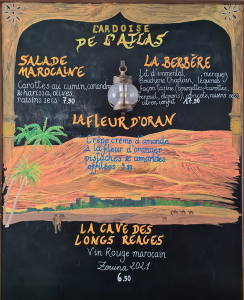 L'ARDOISE
DE L'ATLAS
SALADE
MAROCAINE
Carottes au cumin, coriandre
& harissa, olives,
raisins secs 7.50
LA BERBÈRE
Lit d'emmental, merguez
Boucherie Chaplain, légumes
façon tajine (courgettes/carottes
fenouil, oignons), abricots, raisins secs
citron confit 17.50
LA FLEUR D'ORAN
Crêpe crème d'amande
à la fleur d'oranger
pistaches & amandes
effilées 9.50
LA CAVE DES
LONGS REAGES
Vin Rouge marocain
Zouina 2021
6.50